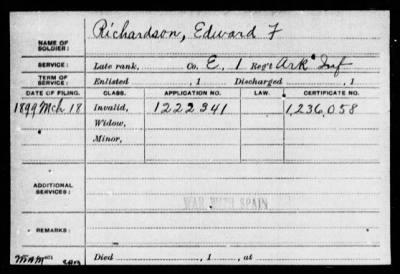 NAME OF SOLDIER: Richardson, Edward F
SERVICE: Late rank, Co. E, 1 Reg't Ark Inf
TERM OF SERVICE: Enlisted , 1 Discharged , 1
DATE OF FILING. CLASS. APPLICATION NO. LAW. CERTIFICATE NO.
1899 Mch 18 Invalid, 1222341 1,236,058
Widow,
Minor,
ADDITIONAL SERVICES:
WAR WITH SPAIN
REMARKS:
Died , 1 , at